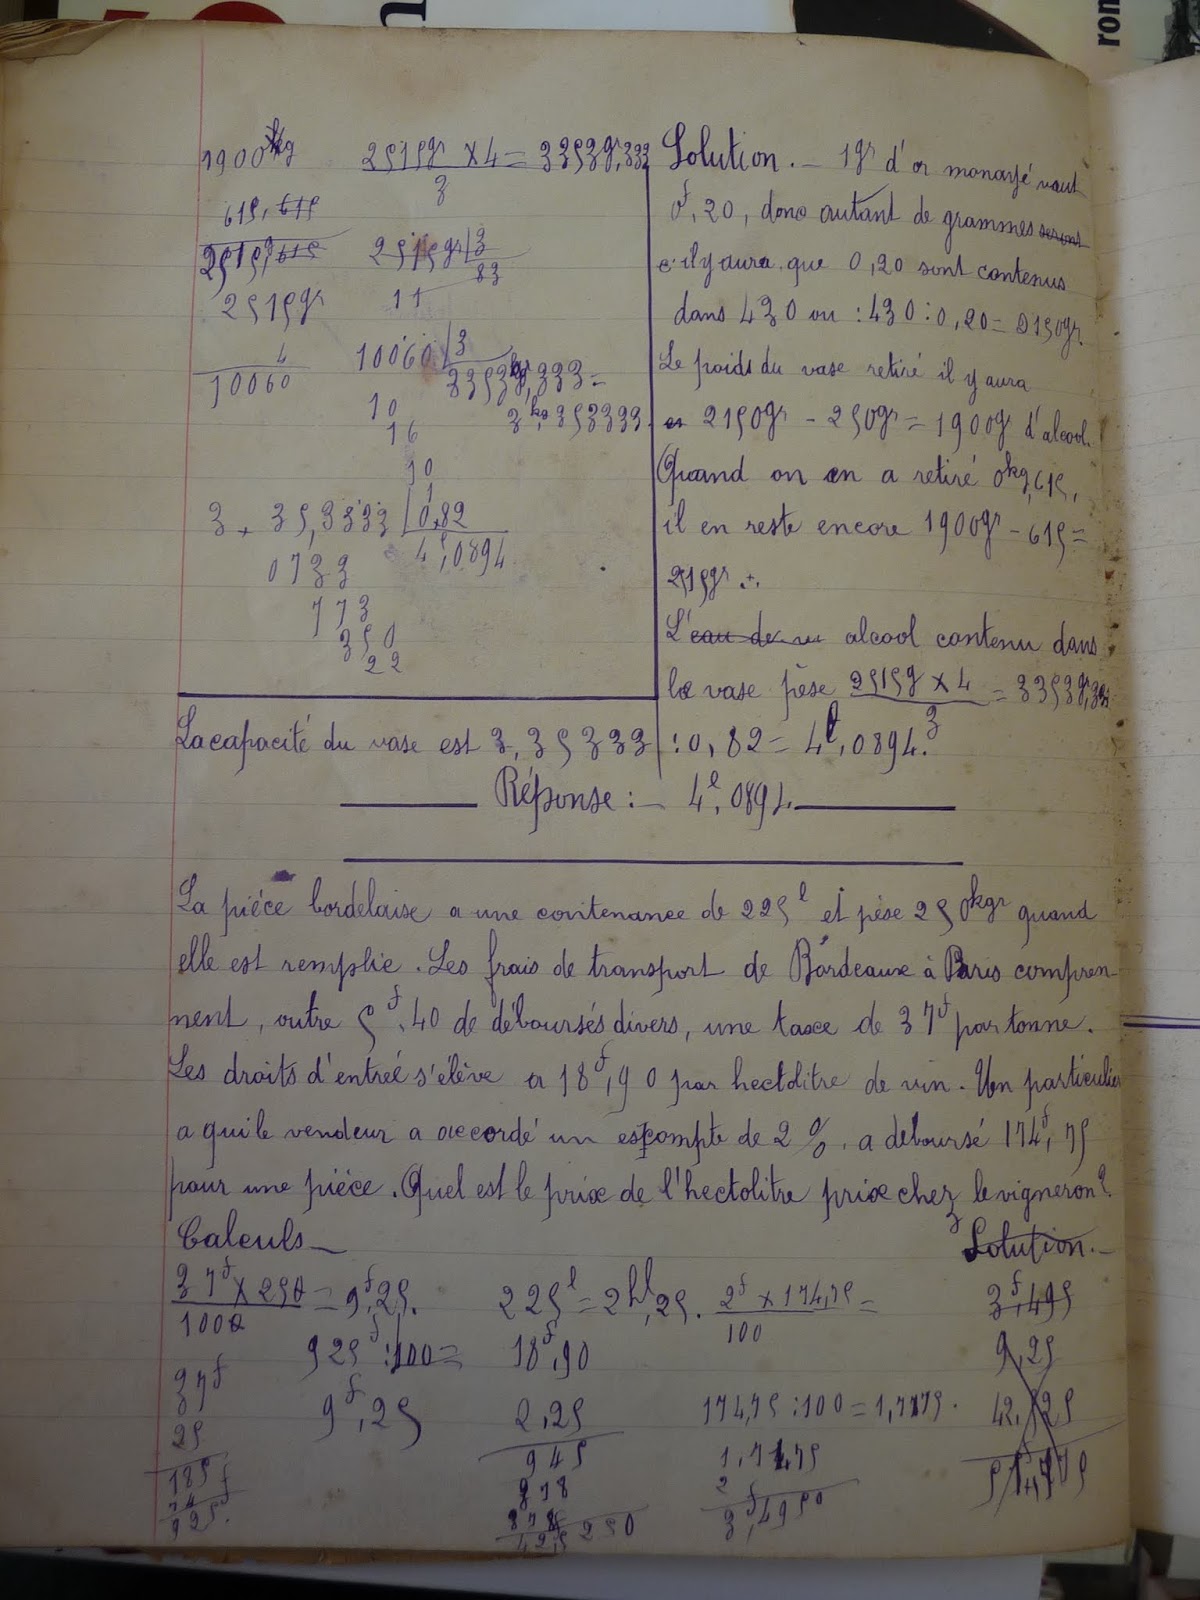 1900kg
615,615
2515g,615
2515gr
4
10060
2515gr × 4 = 3353gr,333
3
2515gr | 3
11 83
10060 | 3
3353gr,333 =
10 3kg,353333
16
10
1
3,35,3333 | 0,82
0733 4,0894
773
350
22
Solution. — 1gr d'or monayé vaut
0f,20, donc autant de grammes seront
s'il y aura que 0,20 sont contenus
dans 430 ou : 430 : 0,20 = 2150gr.
Le poids du vase retiré il y aura
2150gr - 250gr = 1900gr d'alcool.
Quand on en a retiré 0kg,615,
il en reste encore 1900gr - 615 =
2515gr.
L'eau de alcool contenu dans
le vase pèse 2515g × 4 = 3353gr,33
3
La capacité du vase est 3,35333 : 0,82 = 4l,0894.
Réponse : — 4l,0894.
La pièce bordelaise a une contenance de 225l et pèse 250kgr quand
elle est remplie. Les frais de transport de Bordeaux à Paris compren-
nent, outre 5f,40 de déboursés divers, une taxe de 37f par tonne.
Les droits d'entrée s'élève a 18f,90 par hectolitre de vin. Un particulier
a qui le vendeur a accordé un escompte de 2 %. a déboursé 174f,75
pour une pièce. Quel est le prix de l'hectolitre prix chez le vigneron?
Calculs — Solution. —
37f × 250 = 9f,25. 225l = 2hl,25. 2f × 174,75 = 3f,495
1000 100
925f : 100 = 18f,90 9,25
37f 9f,25 2,25 174,75 : 100 = 1,7475. 42,525
25 945 1,7475
185 378 2f
74 378 3f,4950
925f. 42,5250